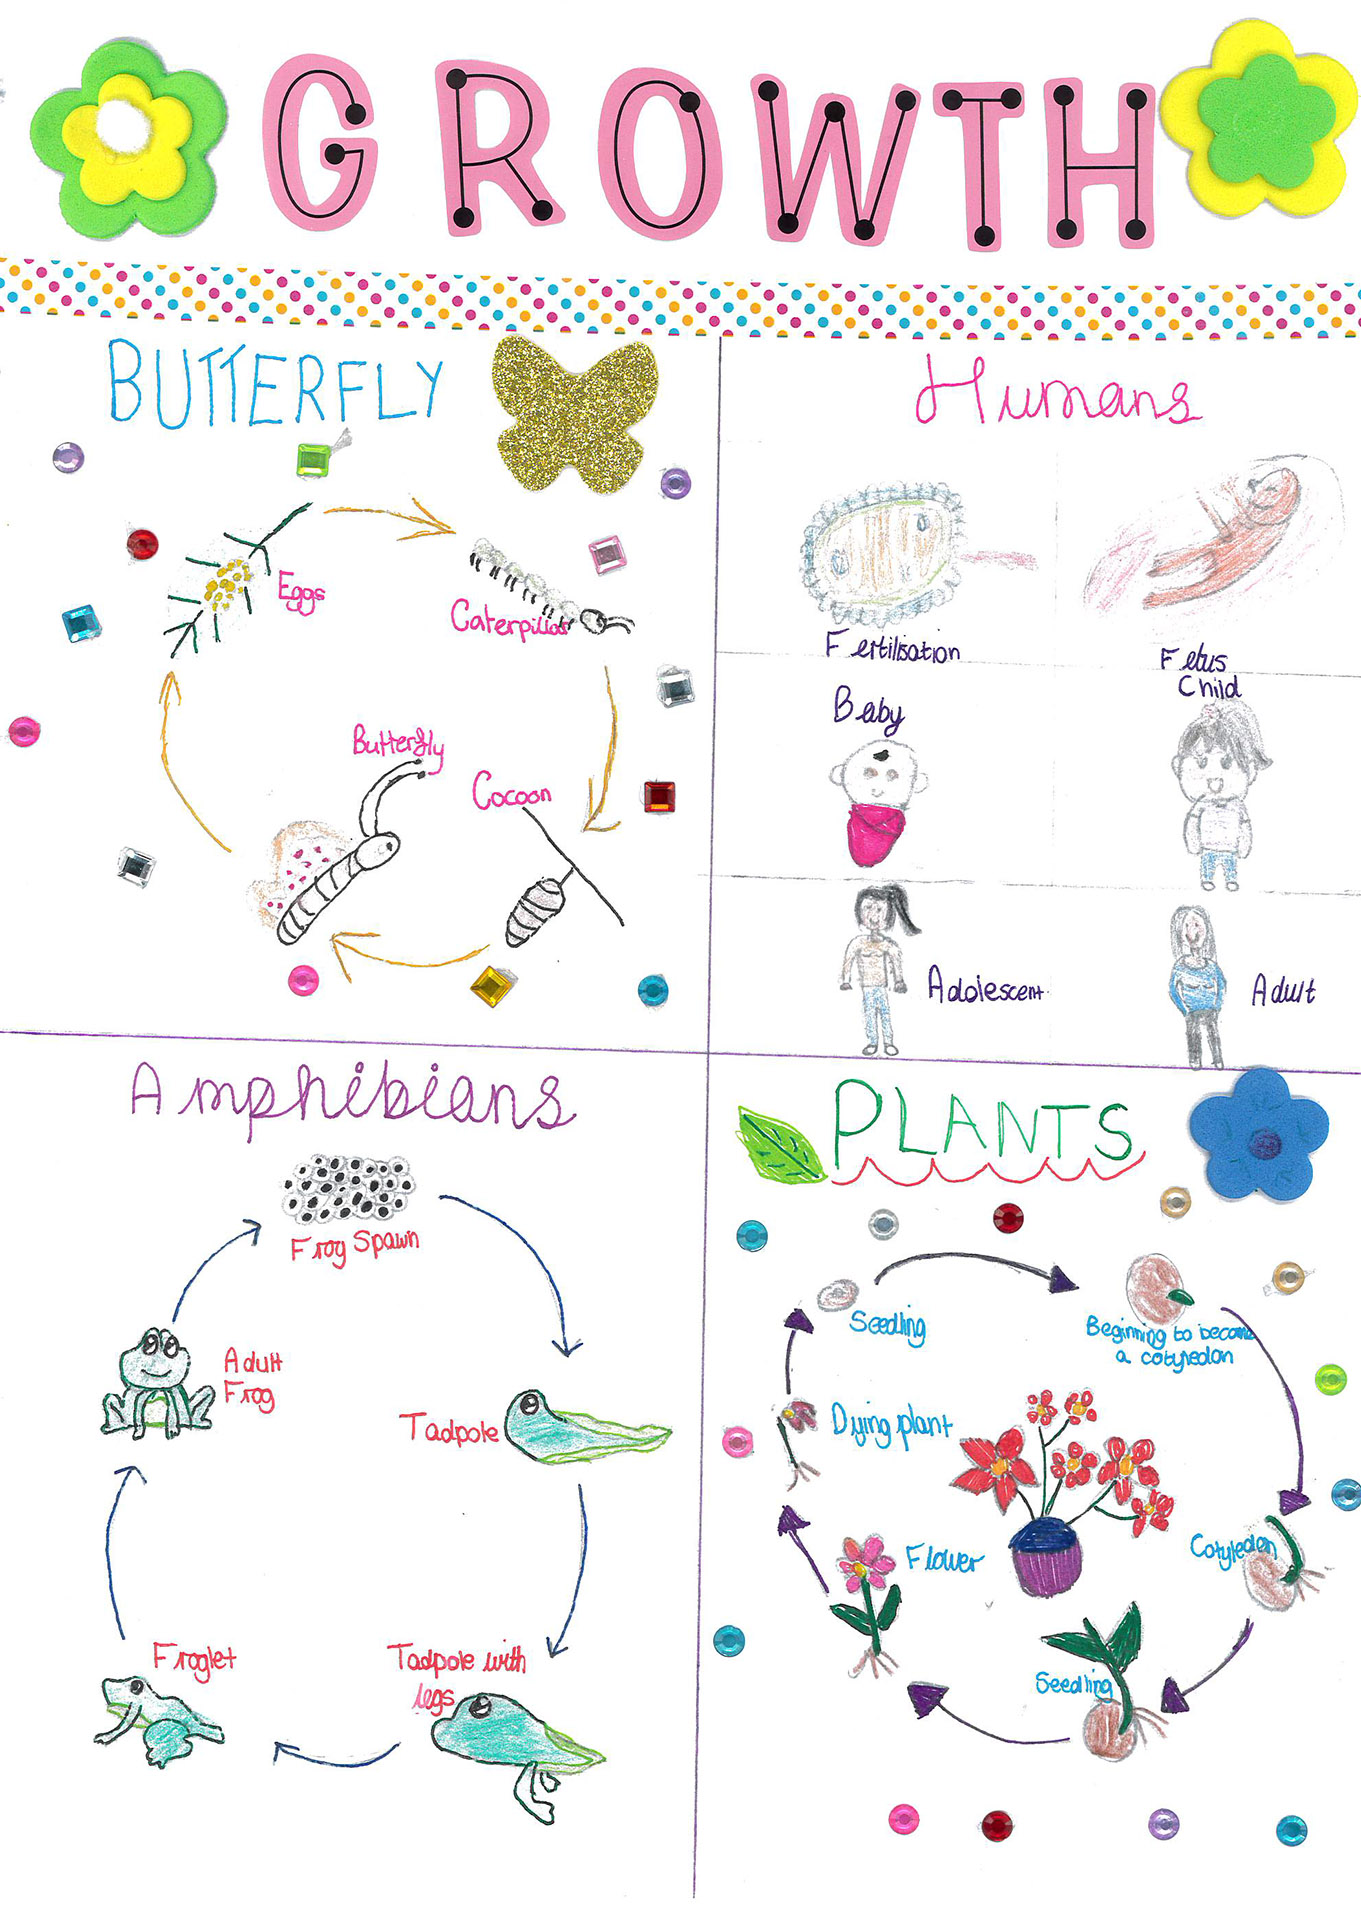 GROWTH
BUTTERFLY
Eggs
Caterpillar
Butterfly
Cocoon
Humans
Fertilisation
Fetus
Baby
Child
Adolescent
Adult
Amphibians
Frog Spawn
Tadpole
Tadpole with
legs
Froglet
Adult
Frog
PLANTS
Seedling
Beginning to become
a cotyledon
Cotyledon
Seedling
Flower
Dying plant